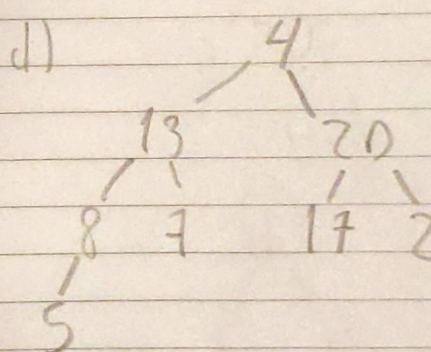 d) 4
13 20
8 7 17 2
5